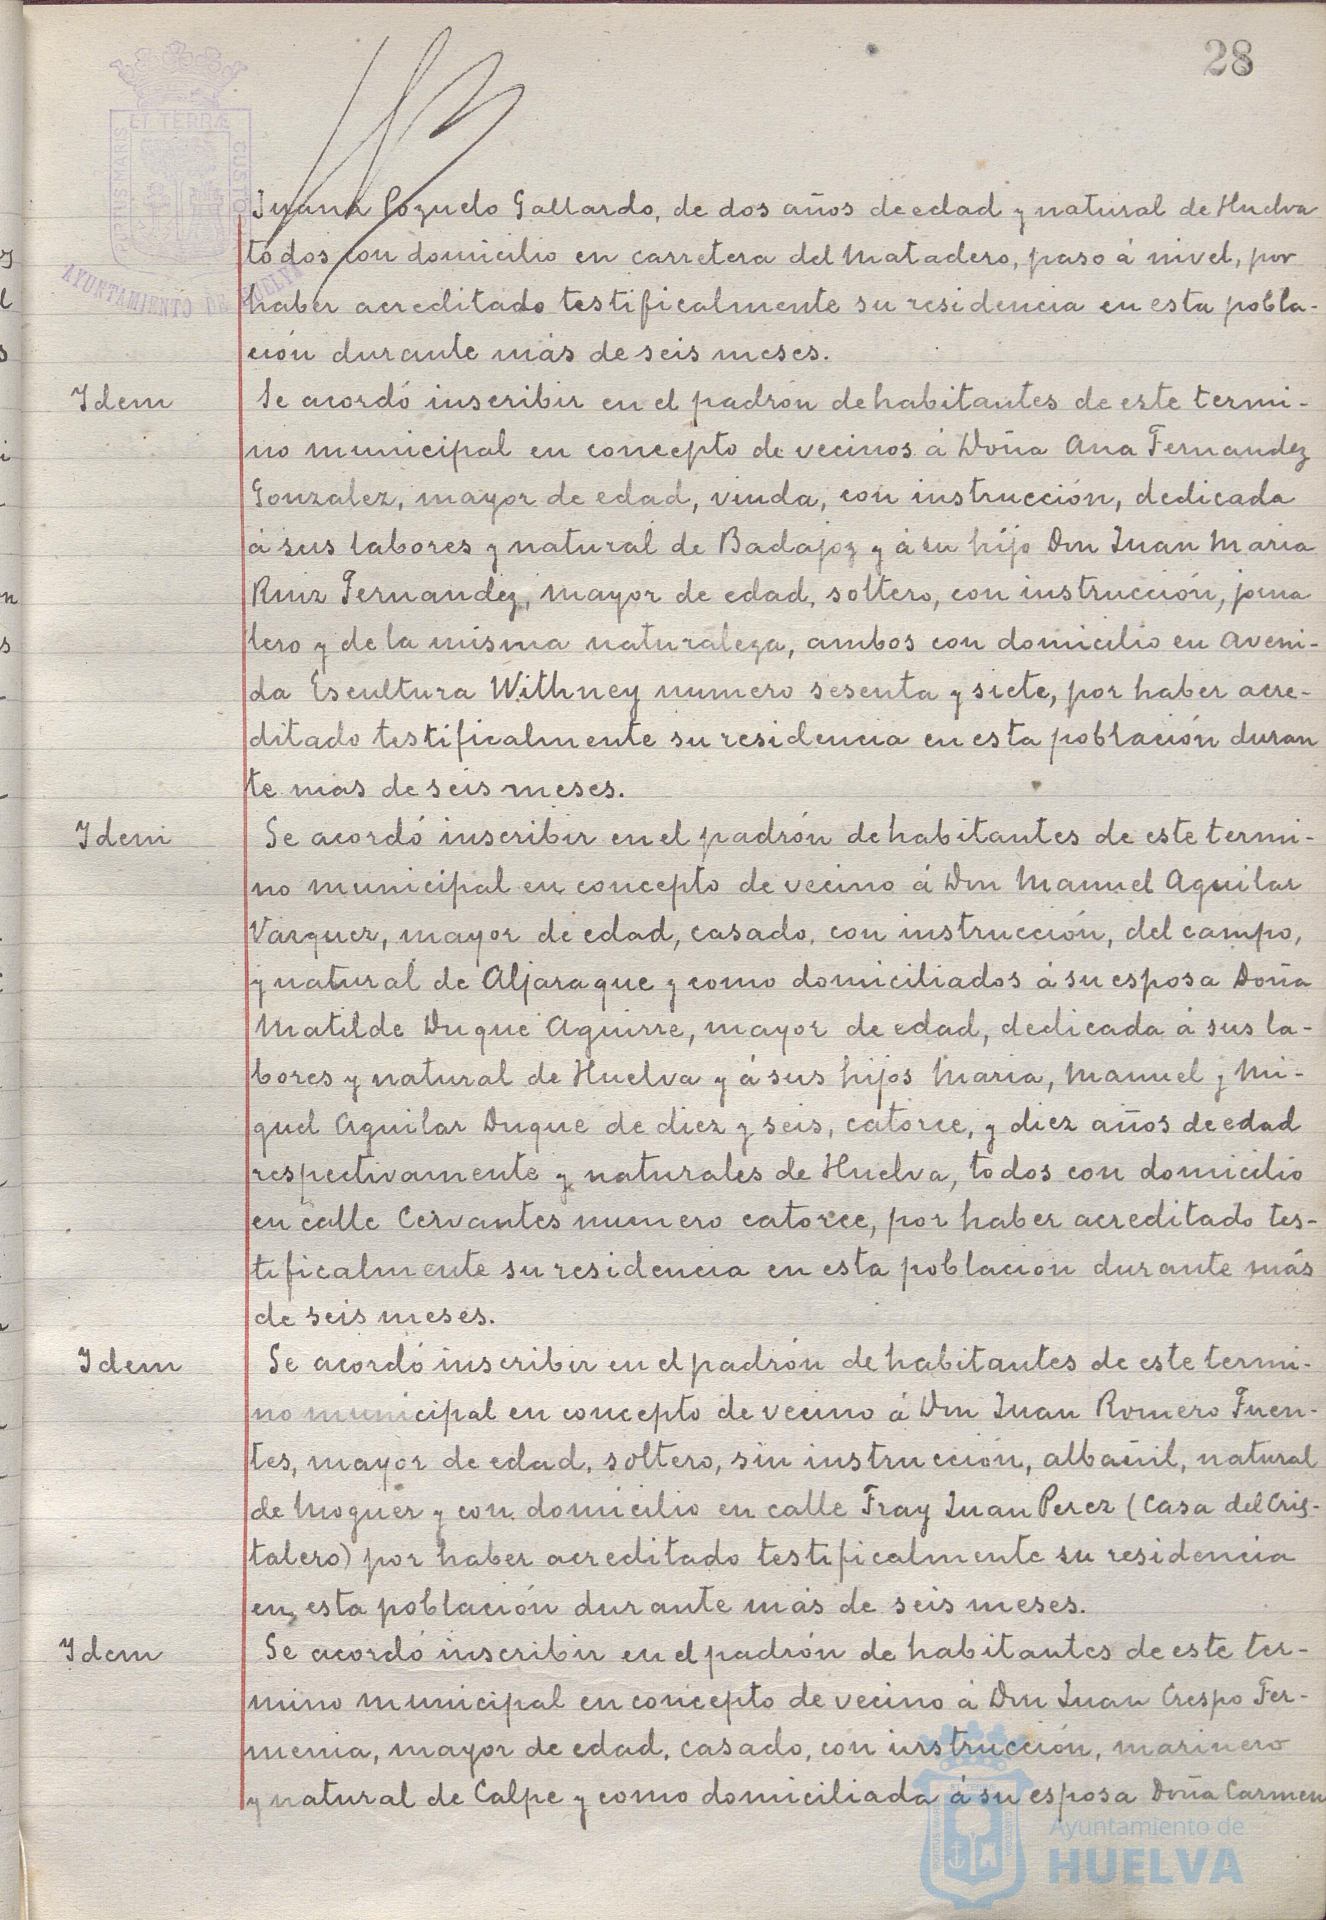 28
PORTUS MARIS ET TERRÆ CUSTO
AYUNTAMIENTO DE HUELVA
Juana Pozuelo Gallardo, de dos años de edad y natural de Huelva
todos con domicilio en carretera del Matadero, paso á nivel, por
haber acreditado testificalmente su residencia en esta pobla-
ción durante más de seis meses.
Idem
Se acordó inscribir en el padrón de habitantes de este termi-
no municipal en concepto de vecinos á Doña Ana Fernandez
Gonzalez, mayor de edad, viuda, con instrucción, dedicada
á sus labores y natural de Badajoz y á su hijo Don Juan Maria
Ruiz Fernandez, mayor de edad, soltero, con instrucción, jorna
lero y de la misma naturaleza, ambos con domicilio en Aveni-
da Escultura Withney numero sesenta y siete, por haber acre-
ditado testificalmente su residencia en esta población duran
te mas de seis meses.
Idem
Se acordó inscribir en el padrón de habitantes de este termi-
no municipal en concepto de vecino á Don Manuel Aguilar
Varquez, mayor de edad, casado, con instrucción, del campo,
y natural de Aljaraque y como domiciliados á su esposa Doña
Matilde Duque Aguirre, mayor de edad, dedicada á sus la-
bores y natural de Huelva y á sus hijos Maria, Manuel y Mi-
guel Aguilar Duque de diez y seis, catorce, y diez años de edad
respectivamente y naturales de Huelva, todos con domicilio
en calle Cervantes numero catorce, por haber acreditado tes-
tificalmente su residencia en esta poblacion durante más
de seis meses.
Idem
Se acordó inscribir en el padrón de habitantes de este termi-
no municipal en concepto de vecino á Don Juan Romero Fuen-
tes, mayor de edad, soltero, sin instrucción, albañil, natural
de Moguer y con domicilio en calle Fray Juan Perez (Casa del Cris-
talero) por haber acreditado testificalmente su residencia
en esta población durante más de seis meses.
Idem
Se acordó inscribir en el padrón de habitantes de este ter-
mino municipal en concepto de vecino á Don Juan Crespo Fer-
menia, mayor de edad, casado, con instrucción, marinero
y natural de Calpe y como domiciliada á su esposa Doña Carmen
Ayuntamiento de
HUELVA